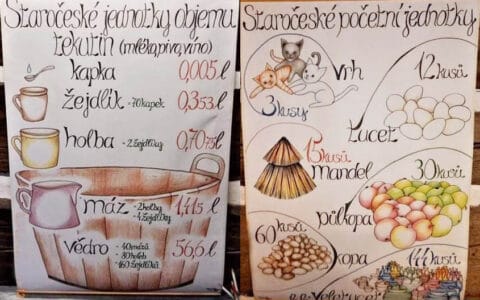 Staročeské jednotky objemu
tekutin (mléka, piva, víno)
kapka 0,005 l
žejdlík - 70 kapek 0,353 l
holba - 2 žejdlíky 0,7075 l
máz - 2 holby 1,415 l
- 4 žejdlíky
vědro - 40 mázů 56,6 l
- 80 holeb
- 160 žejdlíků
Staročeské početní jednotky
vrh
3 kusy
12 kusů
tucet
15 kusů
mandel
30 kusů
půlkopa
60 kusů
kopa
144 kusů